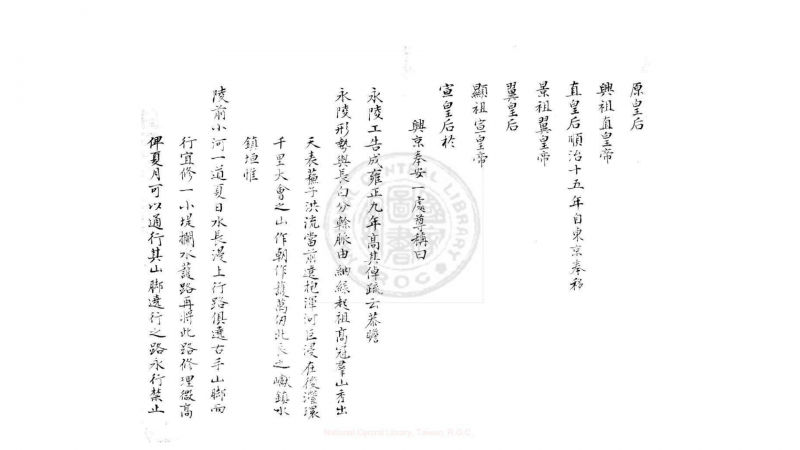 原皇后
興祖直皇帝
直皇后順治十五年自東京奉移
景祖翼皇帝
翼皇后
顯祖宣皇帝
宣皇后於
興京奉安一處尊稱曰
永陵工告成雍正九年高其倬疏云恭瞻
永陵形勢與長白分榦脈由納綠起祖高冠羣山秀出
天表蘇子洪流當前遶抱渾河巨浸在後瀠環
千里大會之山作朝作護萬仞北辰之嶽鎮水
鎮垣惟
陵前小河一道夏日水長漫上行路俱遶右手山脚而
行宜修一小堤攔水護路再將此路修理微高
俾夏月可以通行其山脚遶行之路永行禁止
National Central Library, Taiwan, R.O.C.